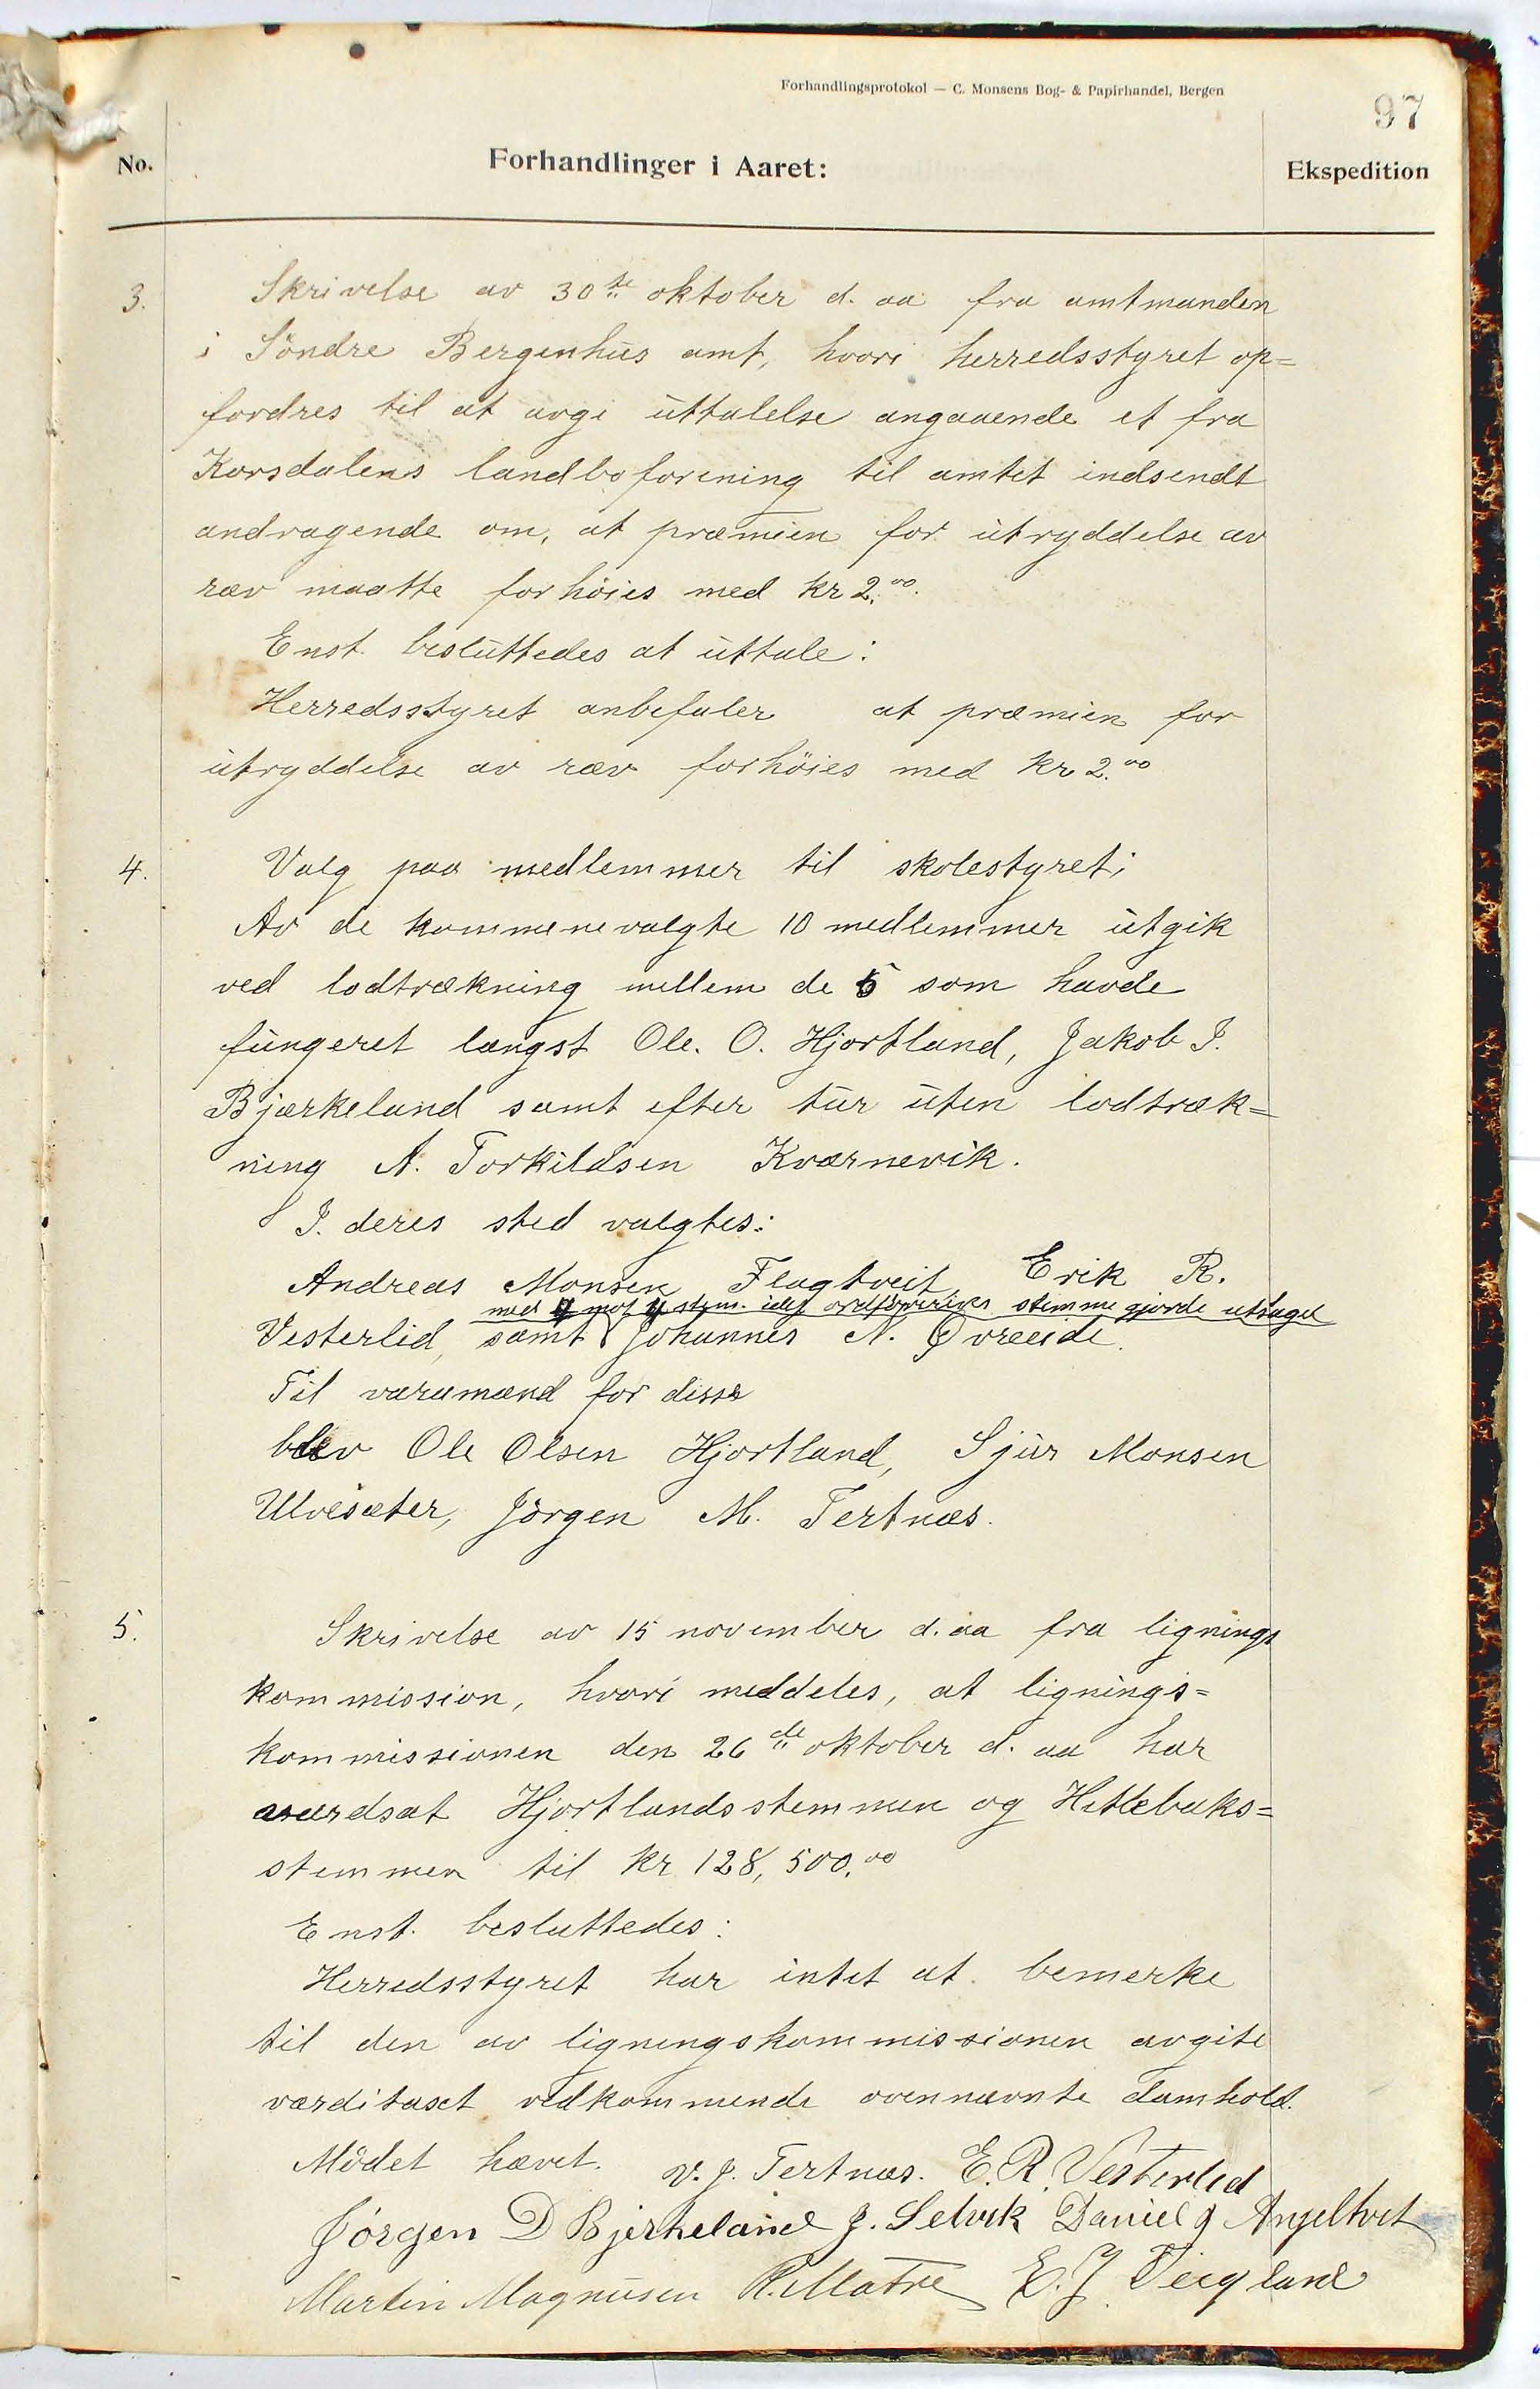 Forhandlingsprotokol — C. Monsens Bog- & Papirhandel, Bergen
97
No.
Forhandlinger i Aaret:
Ekspedition
3. Skrivelse av 30te oktober d. aa fra amtmanden
i Söndre Bergenhus amt, hvori herredsstyret op=
fordres til at avgi uttalelse angaaende et fra
Korsdalens landboforening til amtet indsendt
andragende om, at præmien for utryddelse av
ræv maatte forhöies med kr 2.00.
Enst. besluttedes at uttale:
Herredsstyret anbefaler at præmien for
utryddelse av ræv forhöies med kr 2.00
4. Valg paa medlemmer til skolestyret;
Av de kommunevalgte 10 medlemmer utgik
ved lodtrækning mellem de 5 som havde
fungeret længst Ole. O. Hjortland, Jakob J.
Bjærkeland samt efter tur uten lodtræk=
ning A. Torkildsen Kværnevik.
I. deres sted valgtes:
Andreas Monsen Flagtveit, Erik R.
med 4 mot 4 stem. idet ordförerens stemme gjorde utslaget
Vesterlid, samt Johannes N. Øvreeide.
Til varamænd for disse
blev Ole Olsen Hjortland, Sjur Monsen
Ulvesæter, Jörgen M. Tertnæs.
5. Skrivelse av 15 november d. aa fra lignings
kommission, hvori meddeles, at lignings=
kommissionen den 26de oktober d. aa har
værdsat Hjortlandsstemmen og Hetlebaks=
stemmen til kr 128,500.00
Enst. besluttedes:
Herredsstyret har intet at bemerke
til den av ligningskommissionen avgite
værditaxt vedkommende ovennævnte damhold.
Mödet hævet. V. J. Tertnæs. E. R. Vesterlid
Jörgen D Bjerkeland J. Selvik Daniel J Angeltvet
Martin Magnusen R. Matre E. J. Teigland